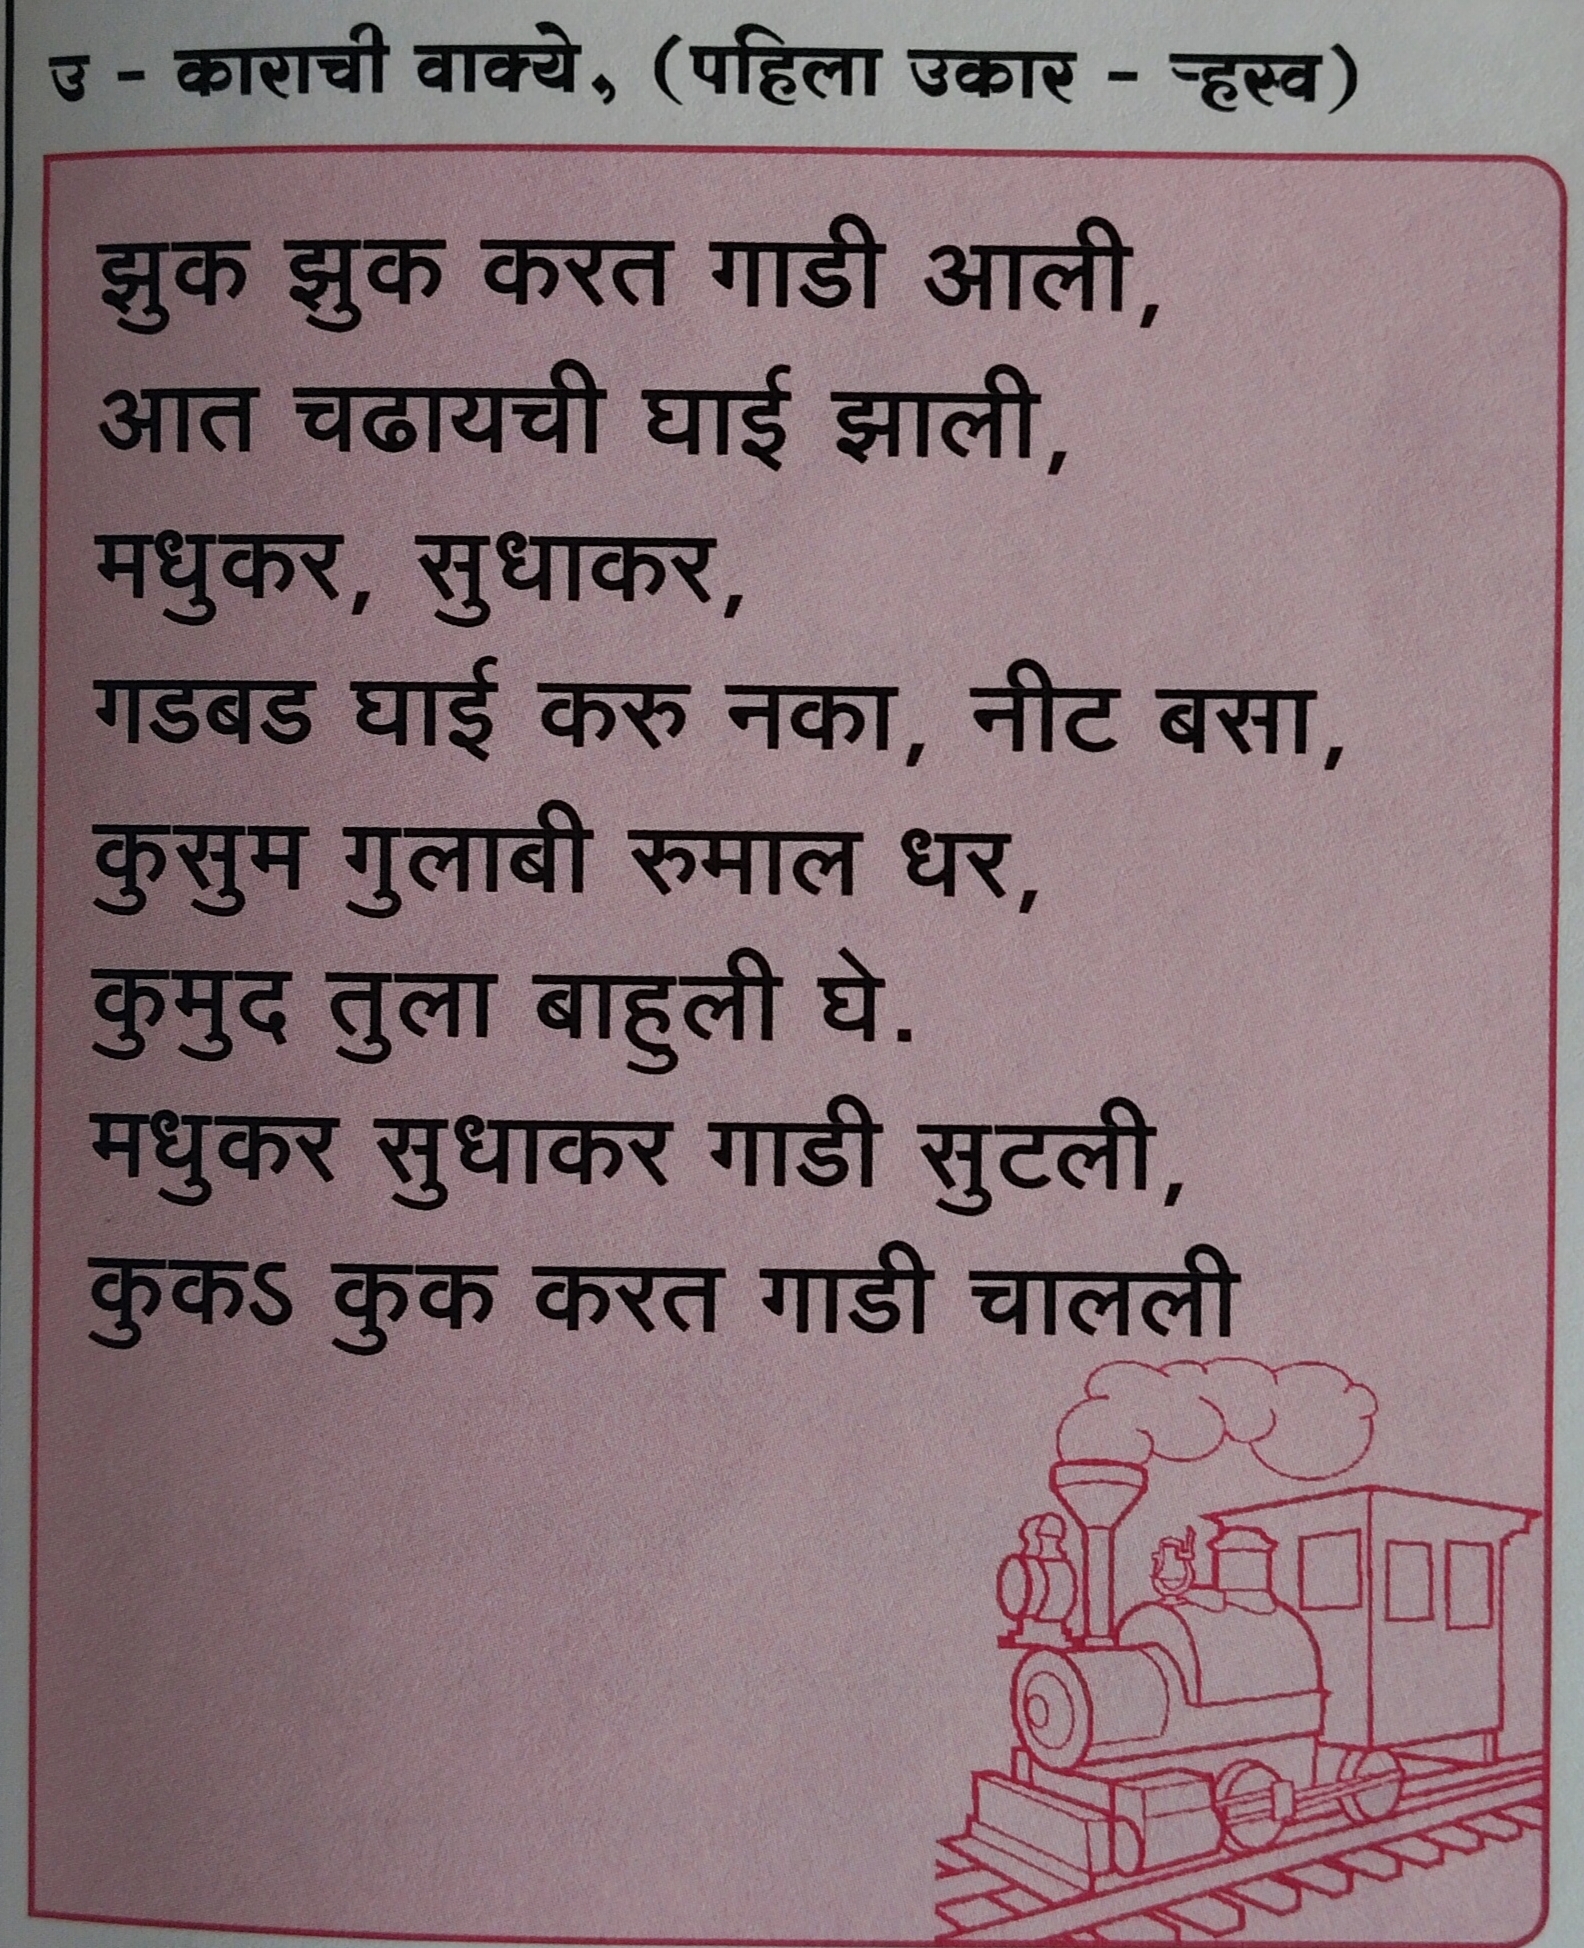 उ - काराची वाक्ये, (पहिला उकार - ऱ्हस्व)
झुक झुक करत गाडी आली,
आत चढायची घाई झाली,
मधुकर, सुधाकर,
गडबड घाई करु नका, नीट बसा,
कुसुम गुलाबी रुमाल धर,
कुमुद तुला बाहुली घे.
मधुकर सुधाकर गाडी सुटली,
कुकऽ कुक करत गाडी चालली